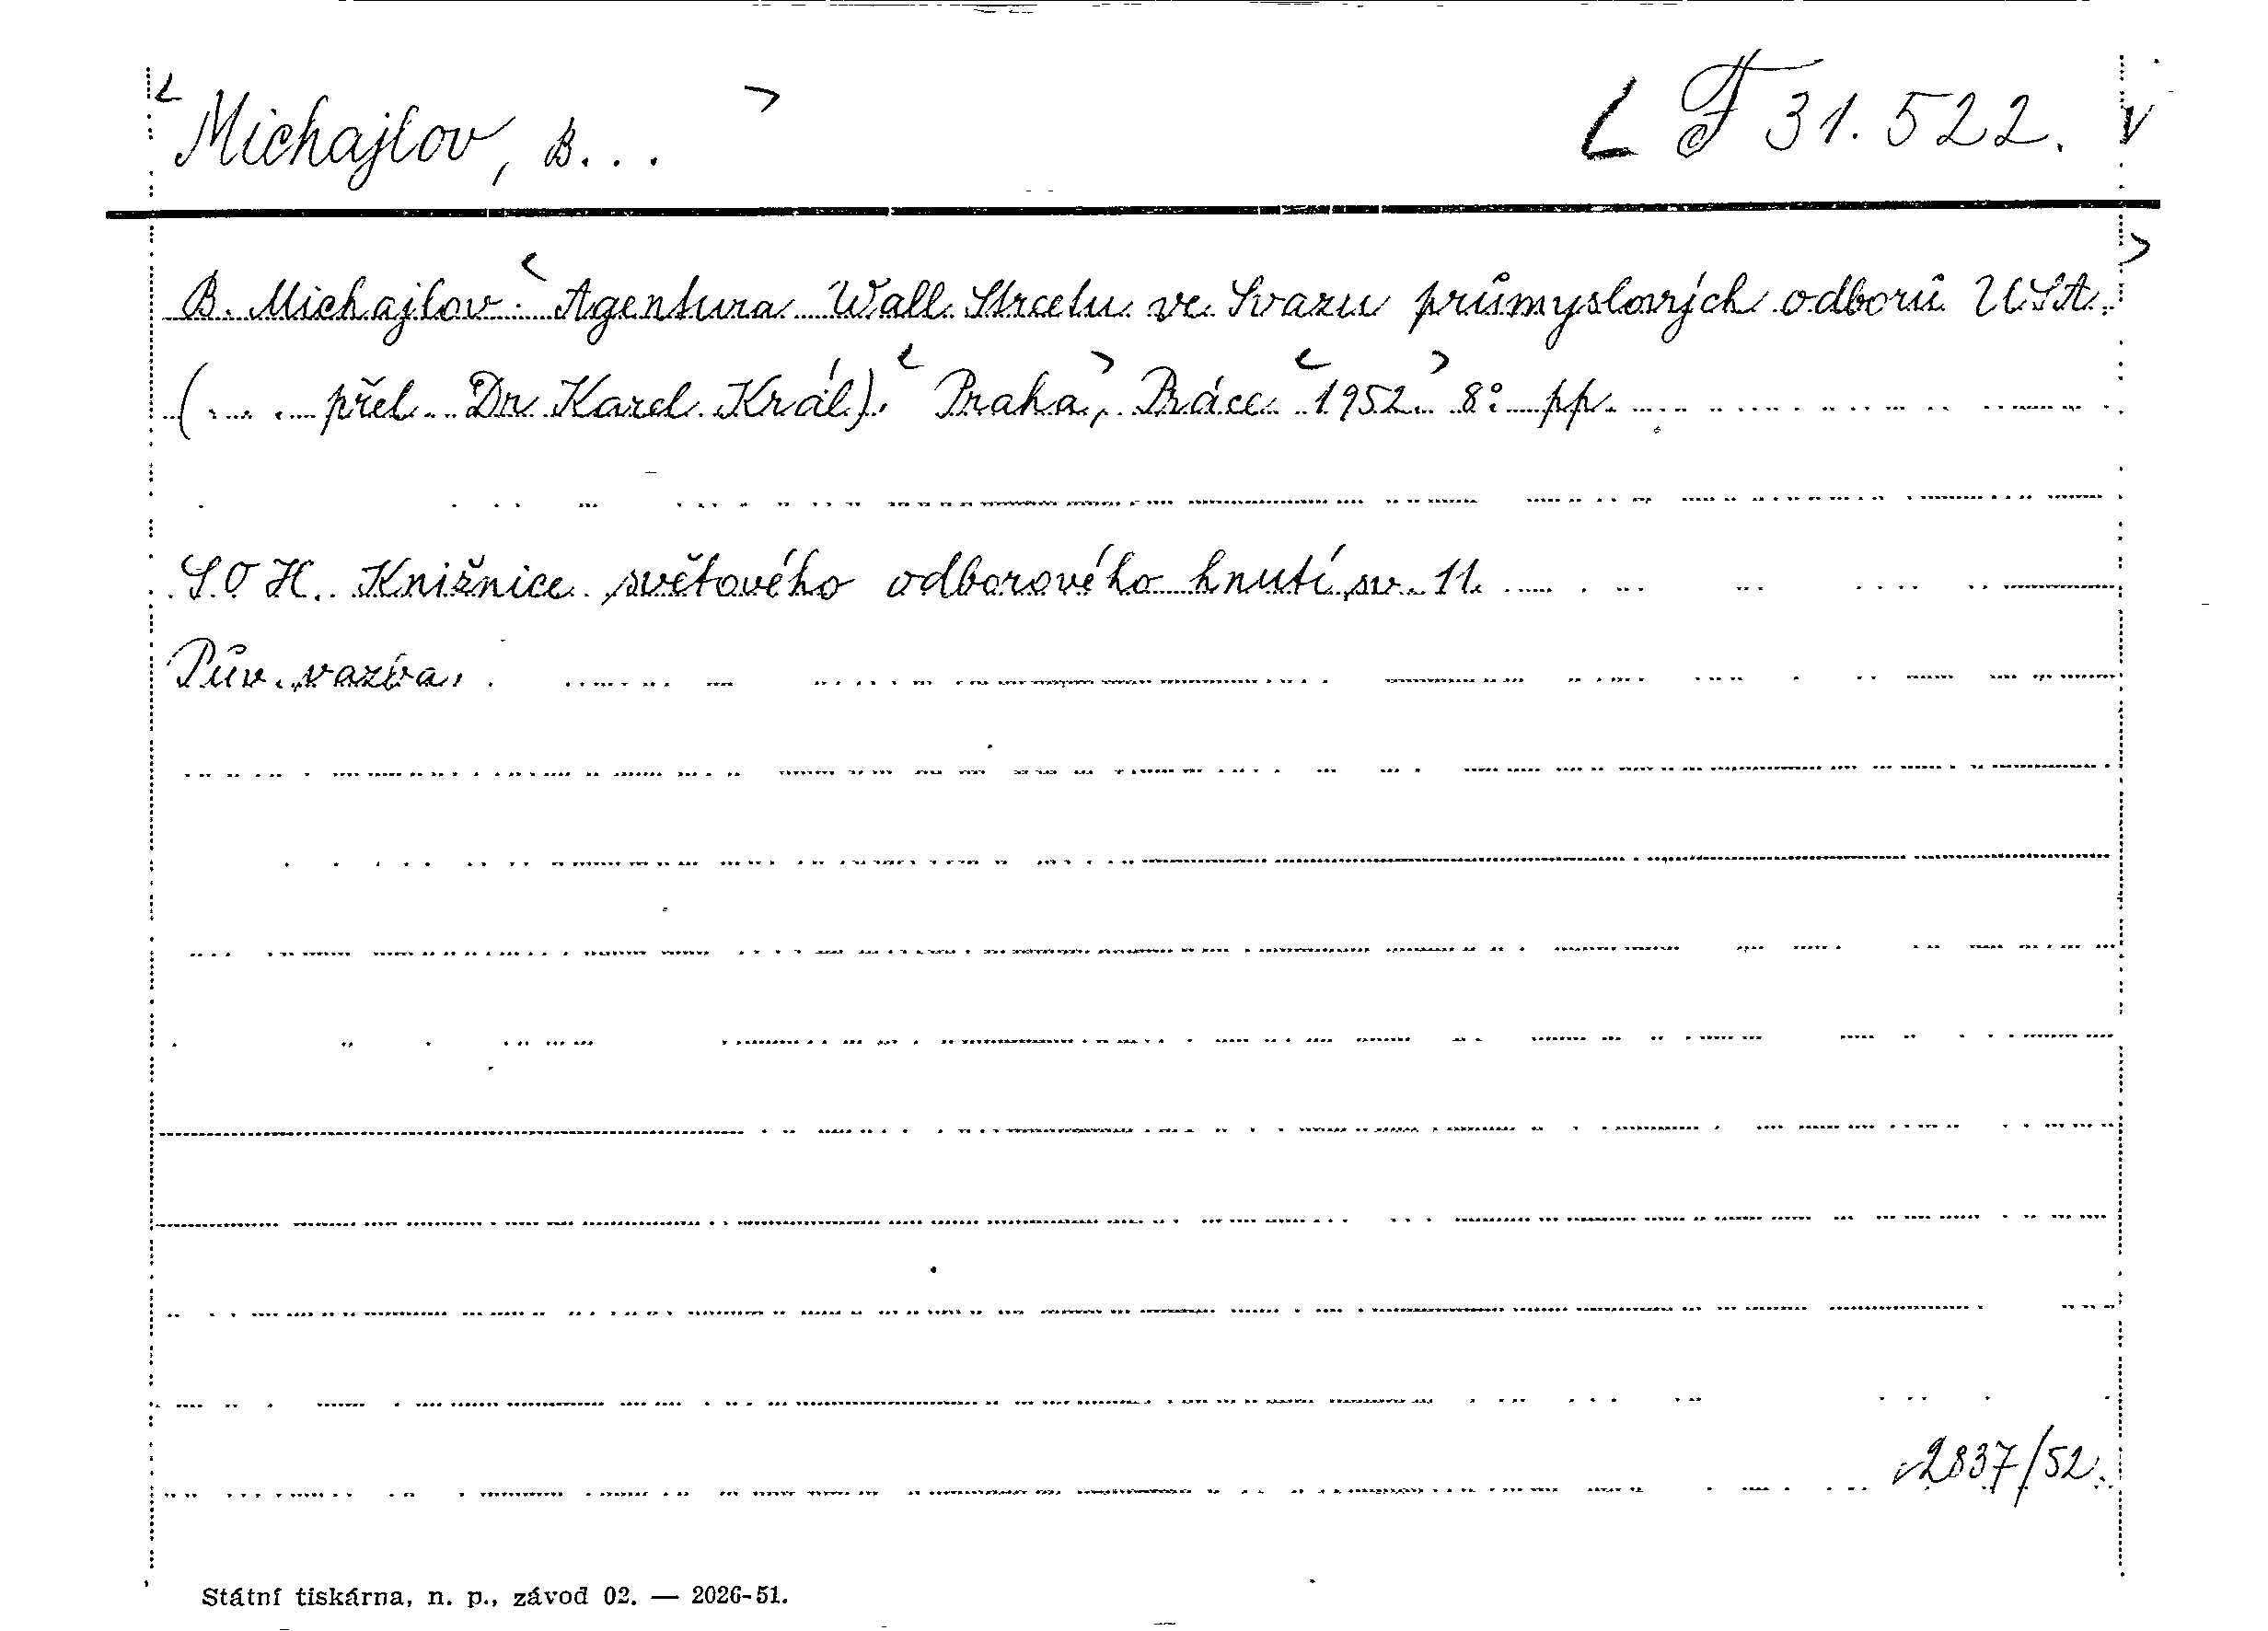 Michajlov, B... F 31.522.
B. Michajlov: Agentura Wall Streetu ve Svazu průmyslových odborů USA.
(... . přel. Dr Karel Král). Praha, Práce 1952. 8° pp.
S.O H. Knižnice světového odborového hnutí, sv. 11.
Pův. vazba.
2837/52.
Státní tiskárna, n. p., závod 02. — 2026-51.